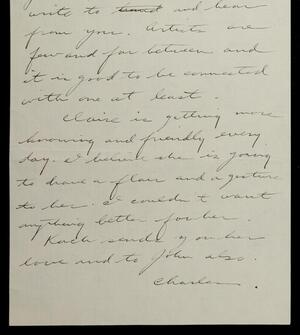 write to and hear
from you. Artists are
few and far between and
it is good to be connected
with one at least.
Claire is getting more
knowing and friendly every
day. I believe she is going
to have a flair and gesture
to her. I couldn't want
anything better for her.
Kach sends you her
love and to John also.
Charles.